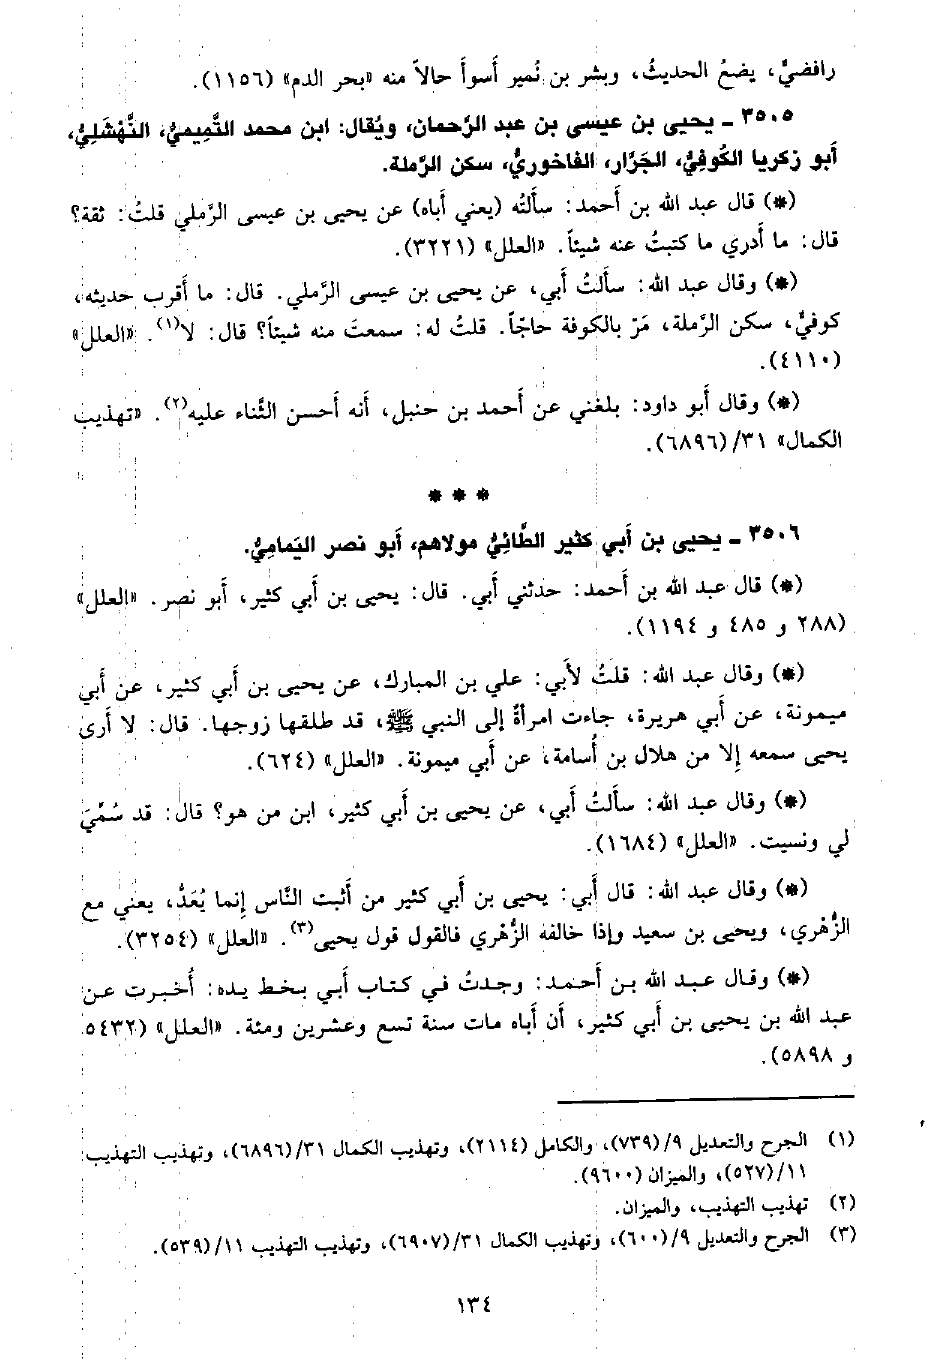 رافضيٌّ، يضعُ الحديثُ، وبشر بن نُمير أَسوأ حالاً منه «بحر الدم» (١١٥٦).
٣٥٠٥ ـ يحيى بن عيسى بن عبد الرَّحمان، ويُقال: ابن محمد التَّمِيميُّ، النَّهْشَلِيُّ،
أَبو زكريا الكُوفِيُّ، الجَرَّار، الفَاخوريُّ، سكن الرَّملة.
(*) قال عبد الله بن أَحمد: سأَلتُه (يعني أَباه) عن يحيى بن عيسى الرَّملي قلتُ: ثقة؟
قال: ما أَدري ما كتبتُ عنه شيئاً. «العلل» (٣٢٢١).
(*) وقال عبد الله: سأَلتُ أَبي، عن يحيى بن عيسى الرَّملي. قال: ما أَقرب حديثه،
كوفيٌّ، سكن الرَّملة، مَرّ بالكوفة حاجّاً. قلتُ له: سمعتَ منه شيئاً؟ قال: لا(١). «العلل»
(٤١١٠).
(*) وقال أَبو داود: بلغني عن أَحمد بن حنبل، أَنه أَحسن الثَّناء عليه(٢). «تهذيب
الكمال» ٣١/(٦٨٩٦).
* * *
٣٥٠٦ ـ يحيى بن أَبي كثير الطَّائِيُّ مولاهم، أَبو نصر اليَمامِيُّ.
(*) قال عبد الله بن أَحمد: حدثني أَبي. قال: يحيى بن أَبي كثير، أَبو نصر. «العلل»
(٢٨٨ و ٤٨٥ و ١١٩٤).
(*) وقال عبد الله: قلتُ لأَبي: علي بن المبارك، عن يحيى بن أَبي كثير، عن أَبي
ميمونة، عن أَبي هريرة، جاءت امرأَةٌ إلى النبي ﷺ، قد طلقها زوجها. قال: لا أَرى
يحيى سمعه إِلا من هلال بن أُسامة، عن أَبي ميمونة. «العلل» (٦٢٤).
(*) وقال عبد الله: سأَلتُ أَبي، عن يحيى بن أَبي كثير، ابن من هو؟ قال: قد سُمِّيَ
لي ونسيت. «العلل» (١٦٨٤).
(*) وقال عبد الله: قال أَبي: يحيى بن أَبي كثير من أَثبت النَّاس إِنما يُعَدُّ، يعني مع
الزُّهري، ويحيى بن سعيد وإذا خالفه الزُّهري فالقول قول يحيى(٣). «العلل» (٣٢٥٤).
(*) وقال عبد الله بن أَحمد: وجدتُ في كتاب أَبي بخط يده: أُخبرت عن
عبد الله بن يحيى بن أَبي كثير، أَن أَباه مات سنة تسع وعشرين ومئة. «العلل» (٥٤٣٢
و ٥٨٩٨).
(١) الجرح والتعديل ٩/(٧٣٩)، والكامل (٢١١٤)، وتهذيب الكمال ٣١/(٦٨٩٦)، وتهذيب التهذيب
١١/(٥٢٧)، والميزان (٩٦٠٠).
(٢) تهذيب التهذيب، والميزان.
(٣) الجرح والتعديل ٩/(٦٠٠)، وتهذيب الكمال ٣١/(٦٩٠٧)، وتهذيب التهذيب ١١/(٥٣٩).
١٣٤